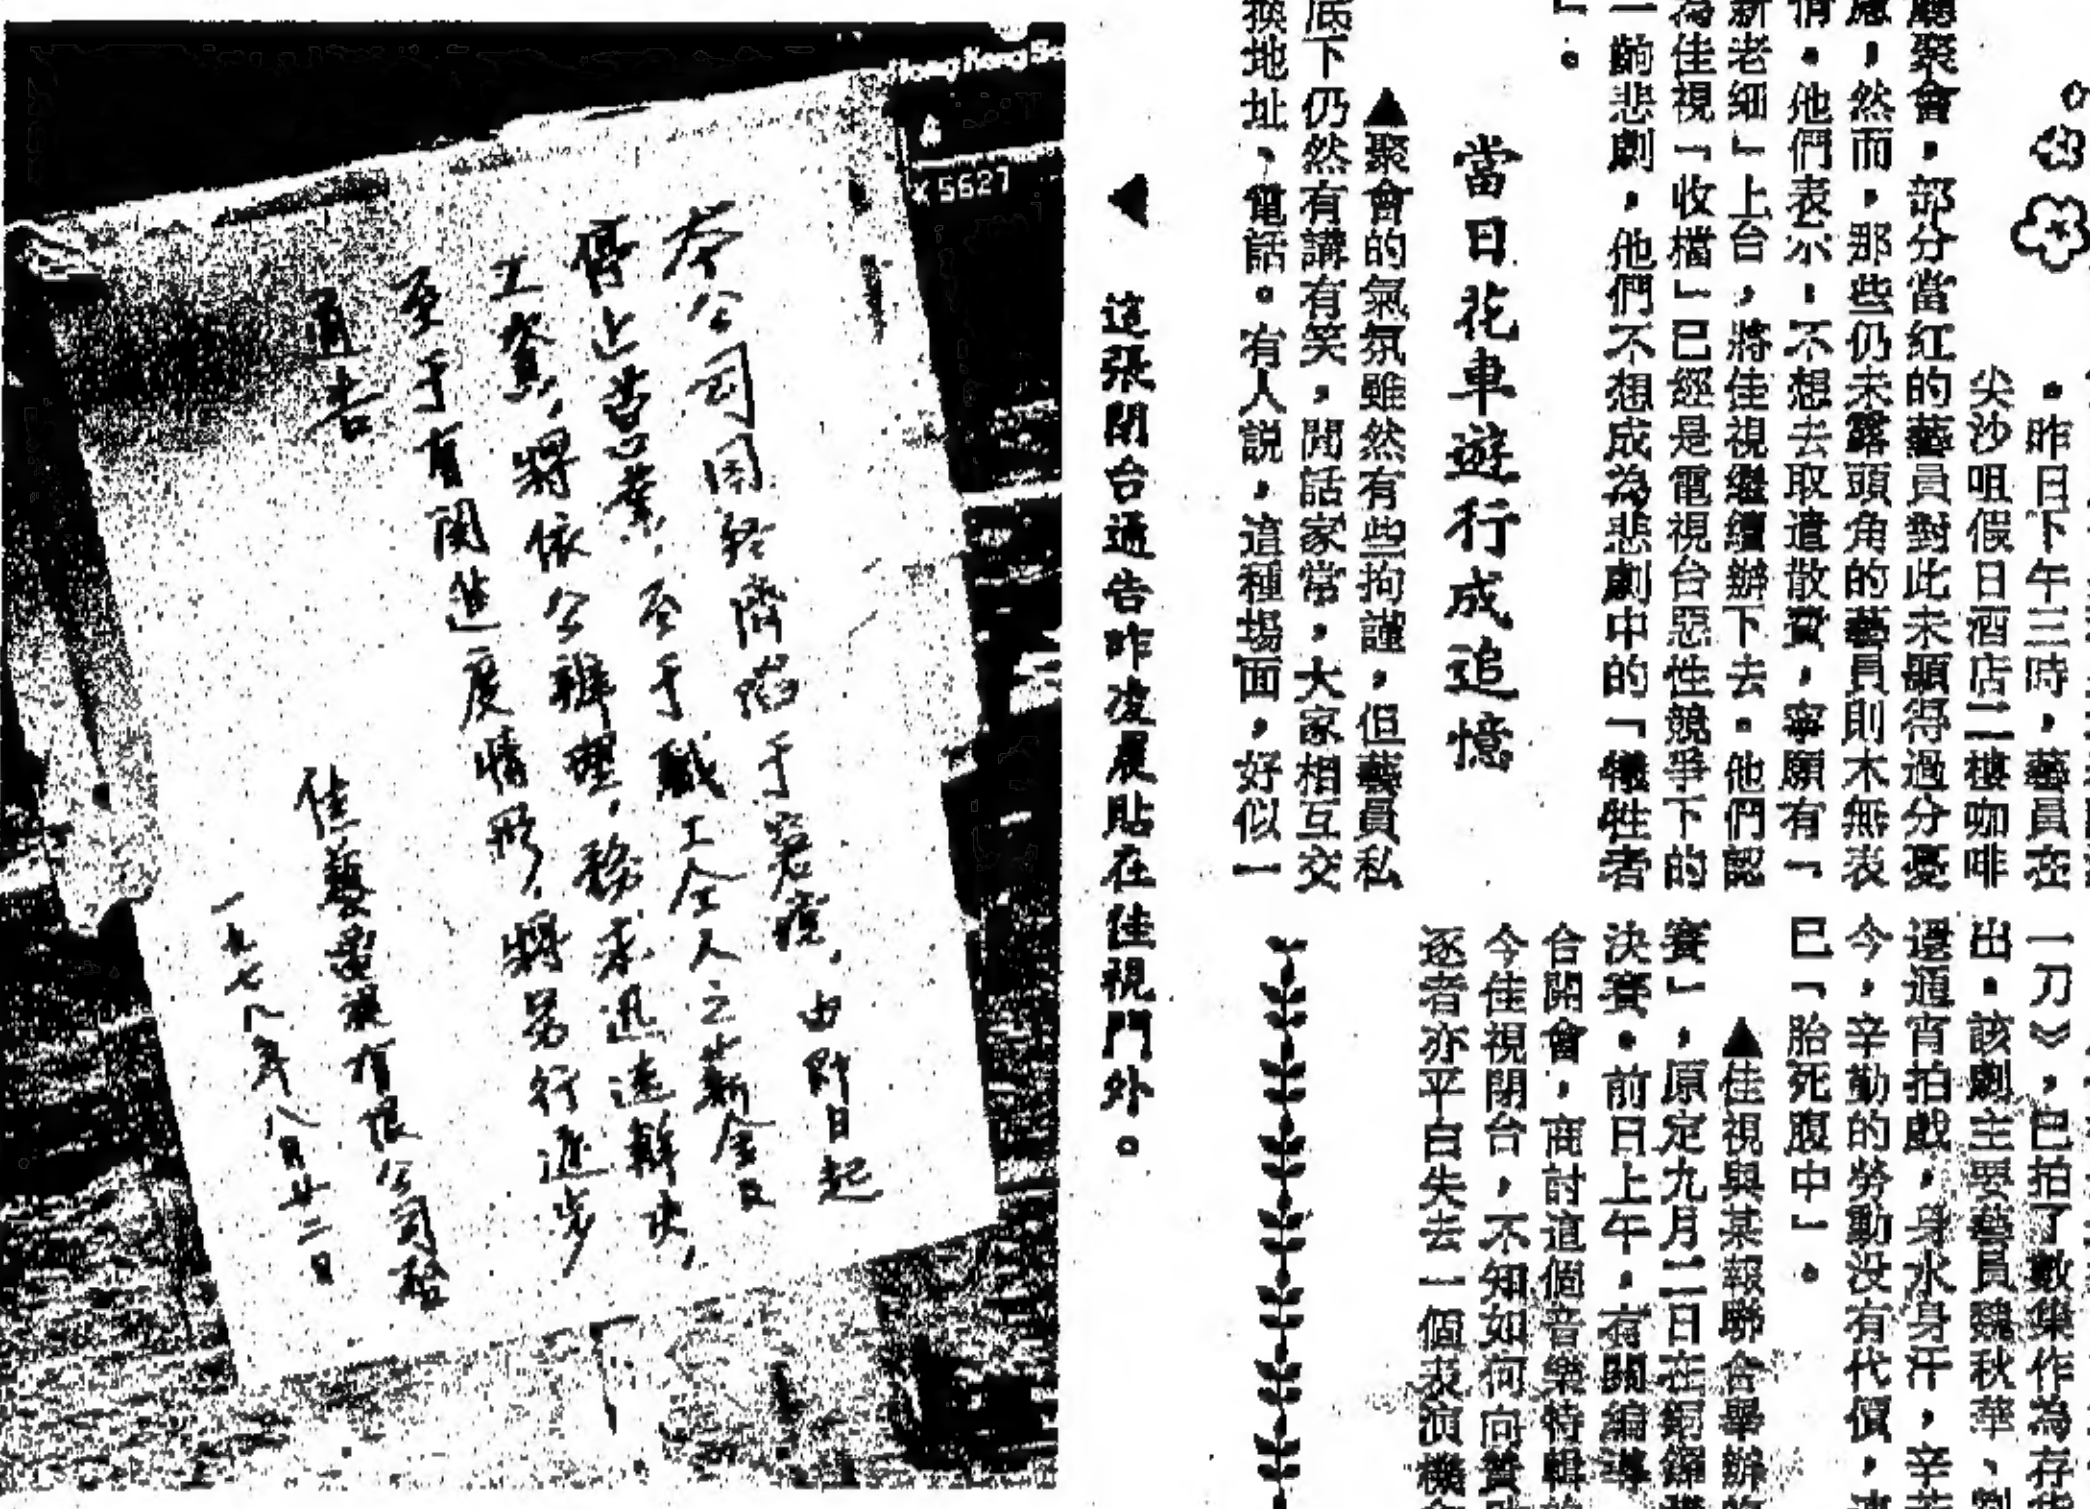 。昨日下午三時，藝員在
尖沙咀假日酒店二樓咖啡
廳聚會。部分當紅的藝員對此未顯得過分憂
慮，然而，那些仍未露頭角的藝員則木無表
情。他們表示：不想去取遣散費，寧願有「
新老細」上台，將佳視繼續辦下去。他們認
為佳視「收檔」已經是電視台惡性競爭下的
一齣悲劇，他們不想成為悲劇中的「犧牲者
」。
當日花車遊行成追憶
▲聚會的氣氛雖然有些拘謹，但藝員私
底下仍然有講有笑，閒話家常，大家相互交
換地址、電話。有人説，這種場面，好似一
一刀》，已拍了數集作為存
出。該劇主要藝員魏秋華、
還通宵拍戲，身水身汗，辛
今，辛勤的勞動没有代價，
已「胎死腹中」。
▲佳視與某報聯合舉辦
賽」，原定九月二日在銅鑼
決賽。前日上午，有關編導
合開會，商討這個音樂特輯
今佳視閉台，不知如何向贊
逐者亦平白失去一個表演機
◀這張閉台通告昨凌晨貼在佳視門外。
Hong Kong
X 5627
本公司因經濟陷于窘境，由即日起
停止營業，至于職工仝人之薪金及
工資，將依公辦理，務求迅速解決，
至于有関進度情形，將另行逐步
通告
佳藝電視有限公司啓
一九七八年八月廿二日